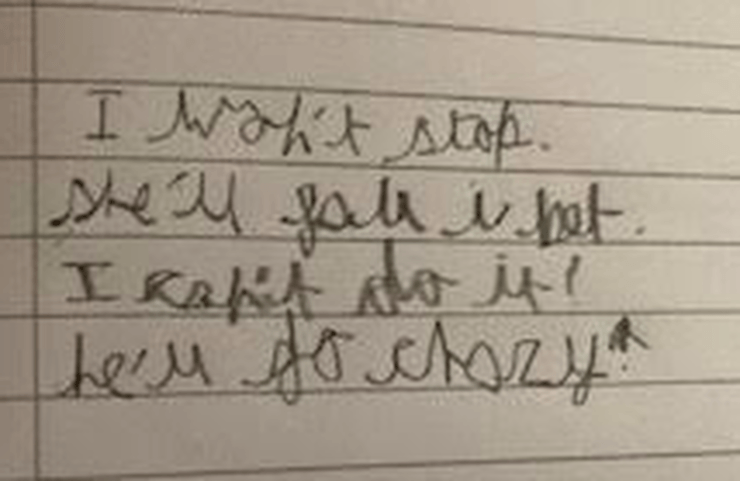 I won't stop.
She'll fall i bet.
I can't do it!
he'll go crazy!